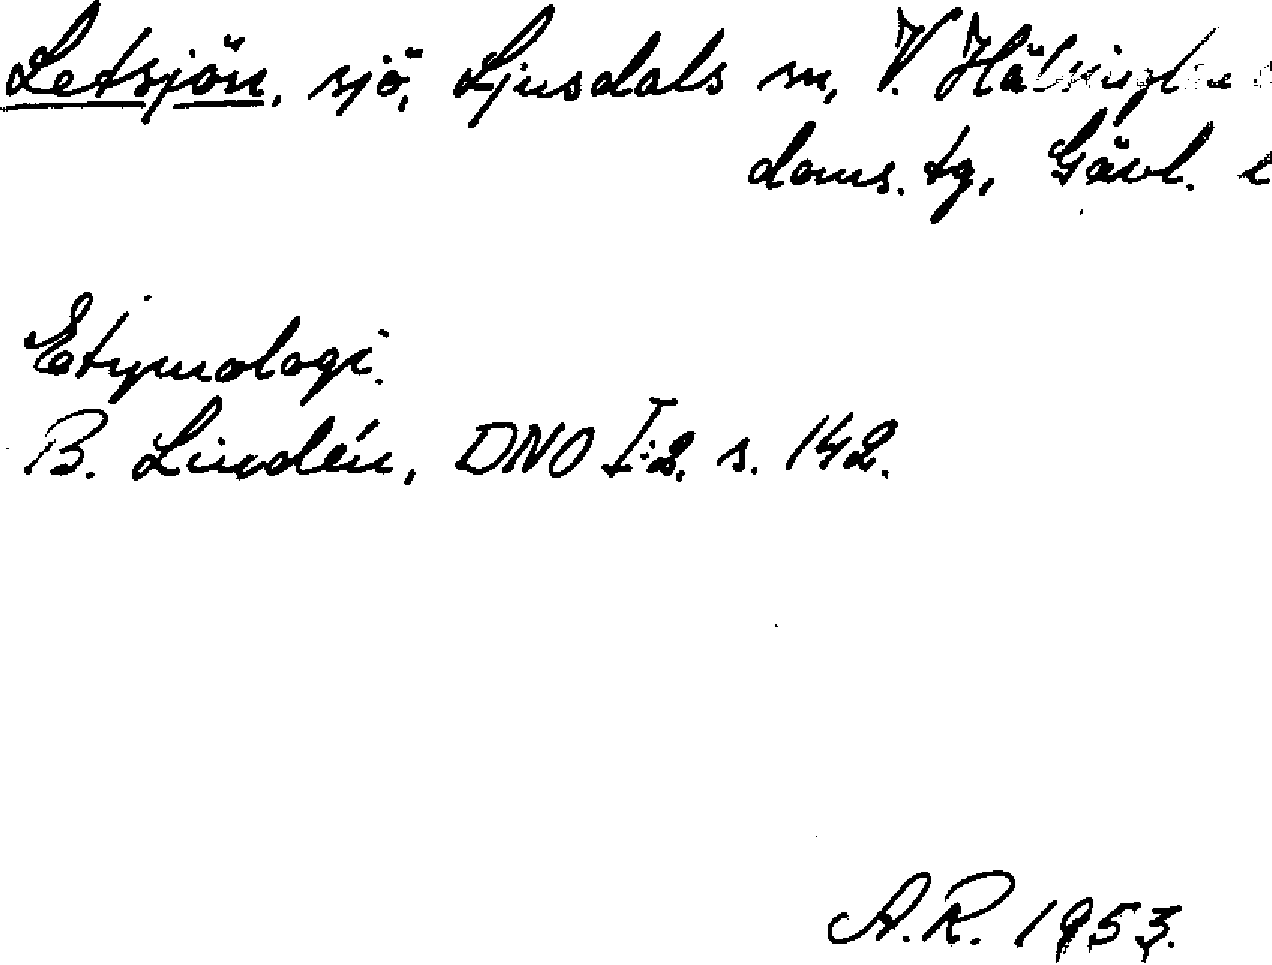 Letsjön, sjö, Ljusdals sn, V. Hälsingl.
doms. tg, Gävl. l
Etymologi.
B. Lindén, DNO I:2, s. 142.
A.R. 1953.